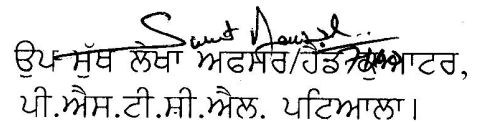 ਉਪ ਮੁੱਖ ਲੇਖਾ ਅਫਸਰ/ਹੈਡ ਕੁਆਟਰ,
ਪੀ.ਐਸ.ਟੀ.ਸੀ.ਐਲ. ਪਟਿਆਲਾ।